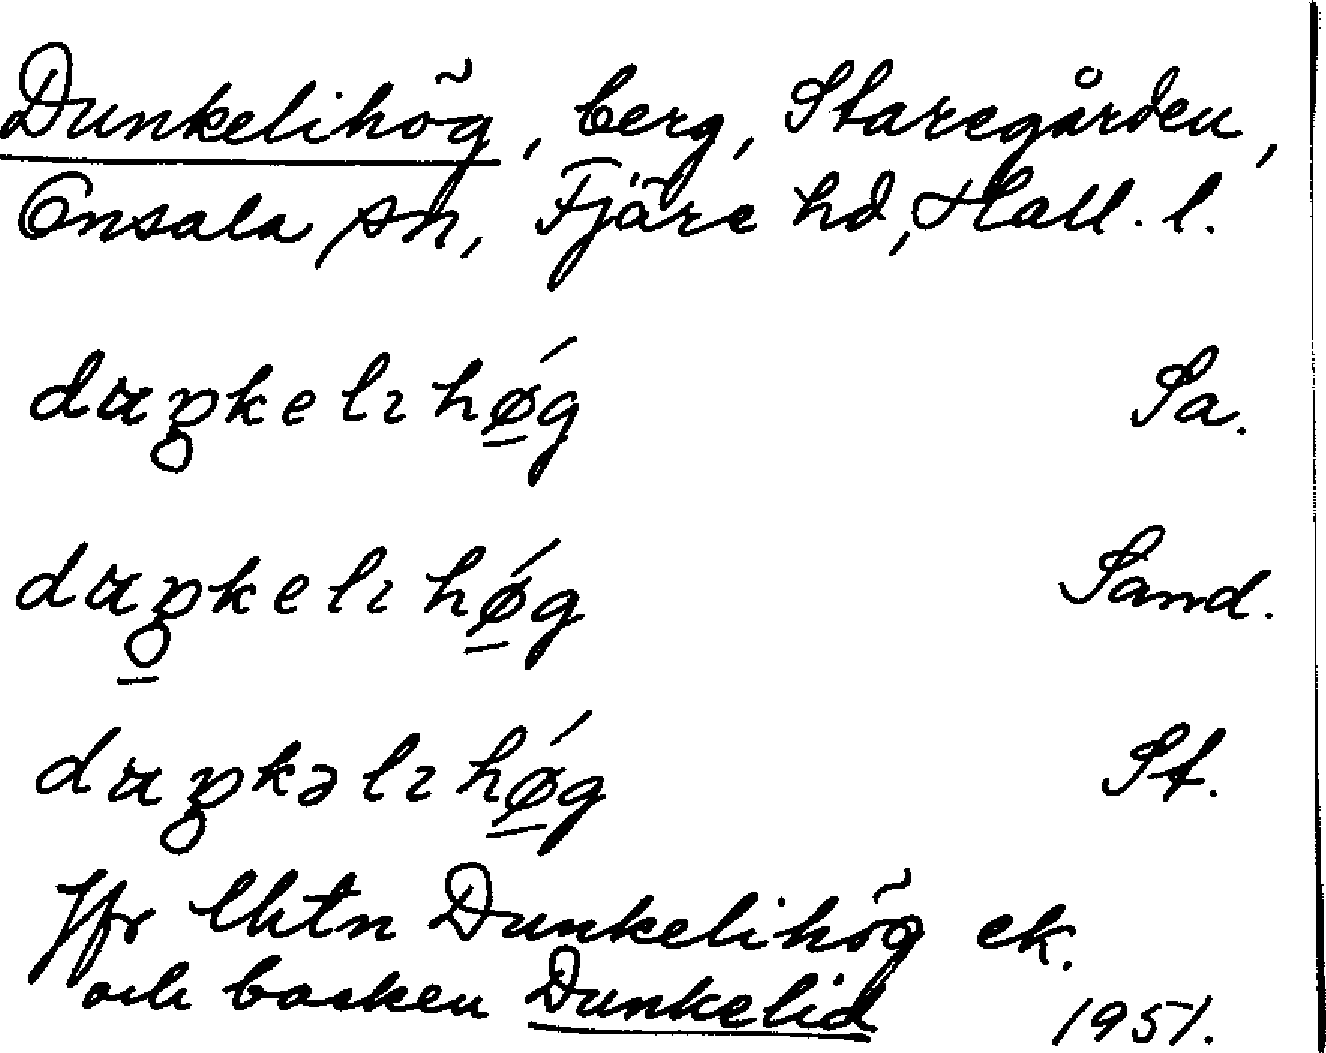 Dunkelihög, berg, Staregården,
Onsala sn, Fjäre hd, Hall. l.
duŋkelıhǿg Sa.
duŋkelıhǿg Sand.
duŋkəlıhǿg St.
Jfr lhtn Dunkelihög ek.
och backen Dunkelid 1951.